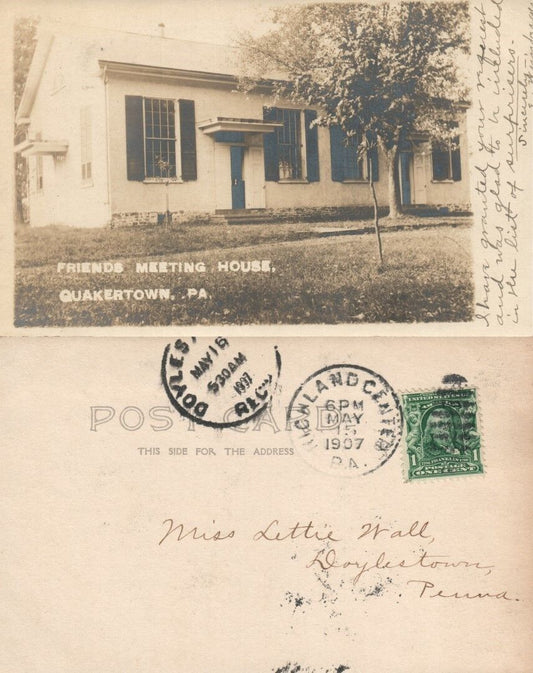 I have granted your request
and was glad to be included
in the list of surprisers.
Sincerely
FRIENDS MEETING HOUSE,
QUAKERTOWN, PA.
DOYLES
MAY 16
530AM
1907
REC'D
RICHLAND CENTER
6 PM
MAY
15
1907
PA.
UNITED STATES
FRANKLIN
1 1
ONE CENT
POST CARD
THIS SIDE FOR THE ADDRESS
Miss Lettie Wall,
Doylestown,
Penna.